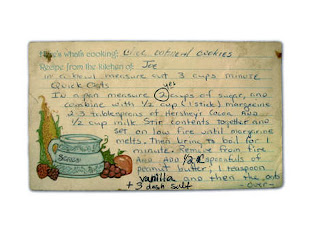 Here's what's cooking: Slice oatmeal cookies
Recipe from the kitchen of: Joe
In cutbowl measure out 3 cups minute
Quick Oats
yes
In a pan measure 2 cups of sugar, and
combine with 1/2 cup (1 stick) margarine
2-3 tablespoons of Hershey's Cocoa And
1/2 cup milk Stir contents together and
set on low fire until margarine
melts. Then bring to boil for 1
minute. Remove from fire
And Add 1/2 C spoonfuls of
peanut butter, 1 teaspoon
vanilla and then the oats
+ 3 dash salt -over-